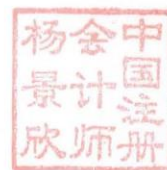 中国注册
会计师
杨景欣